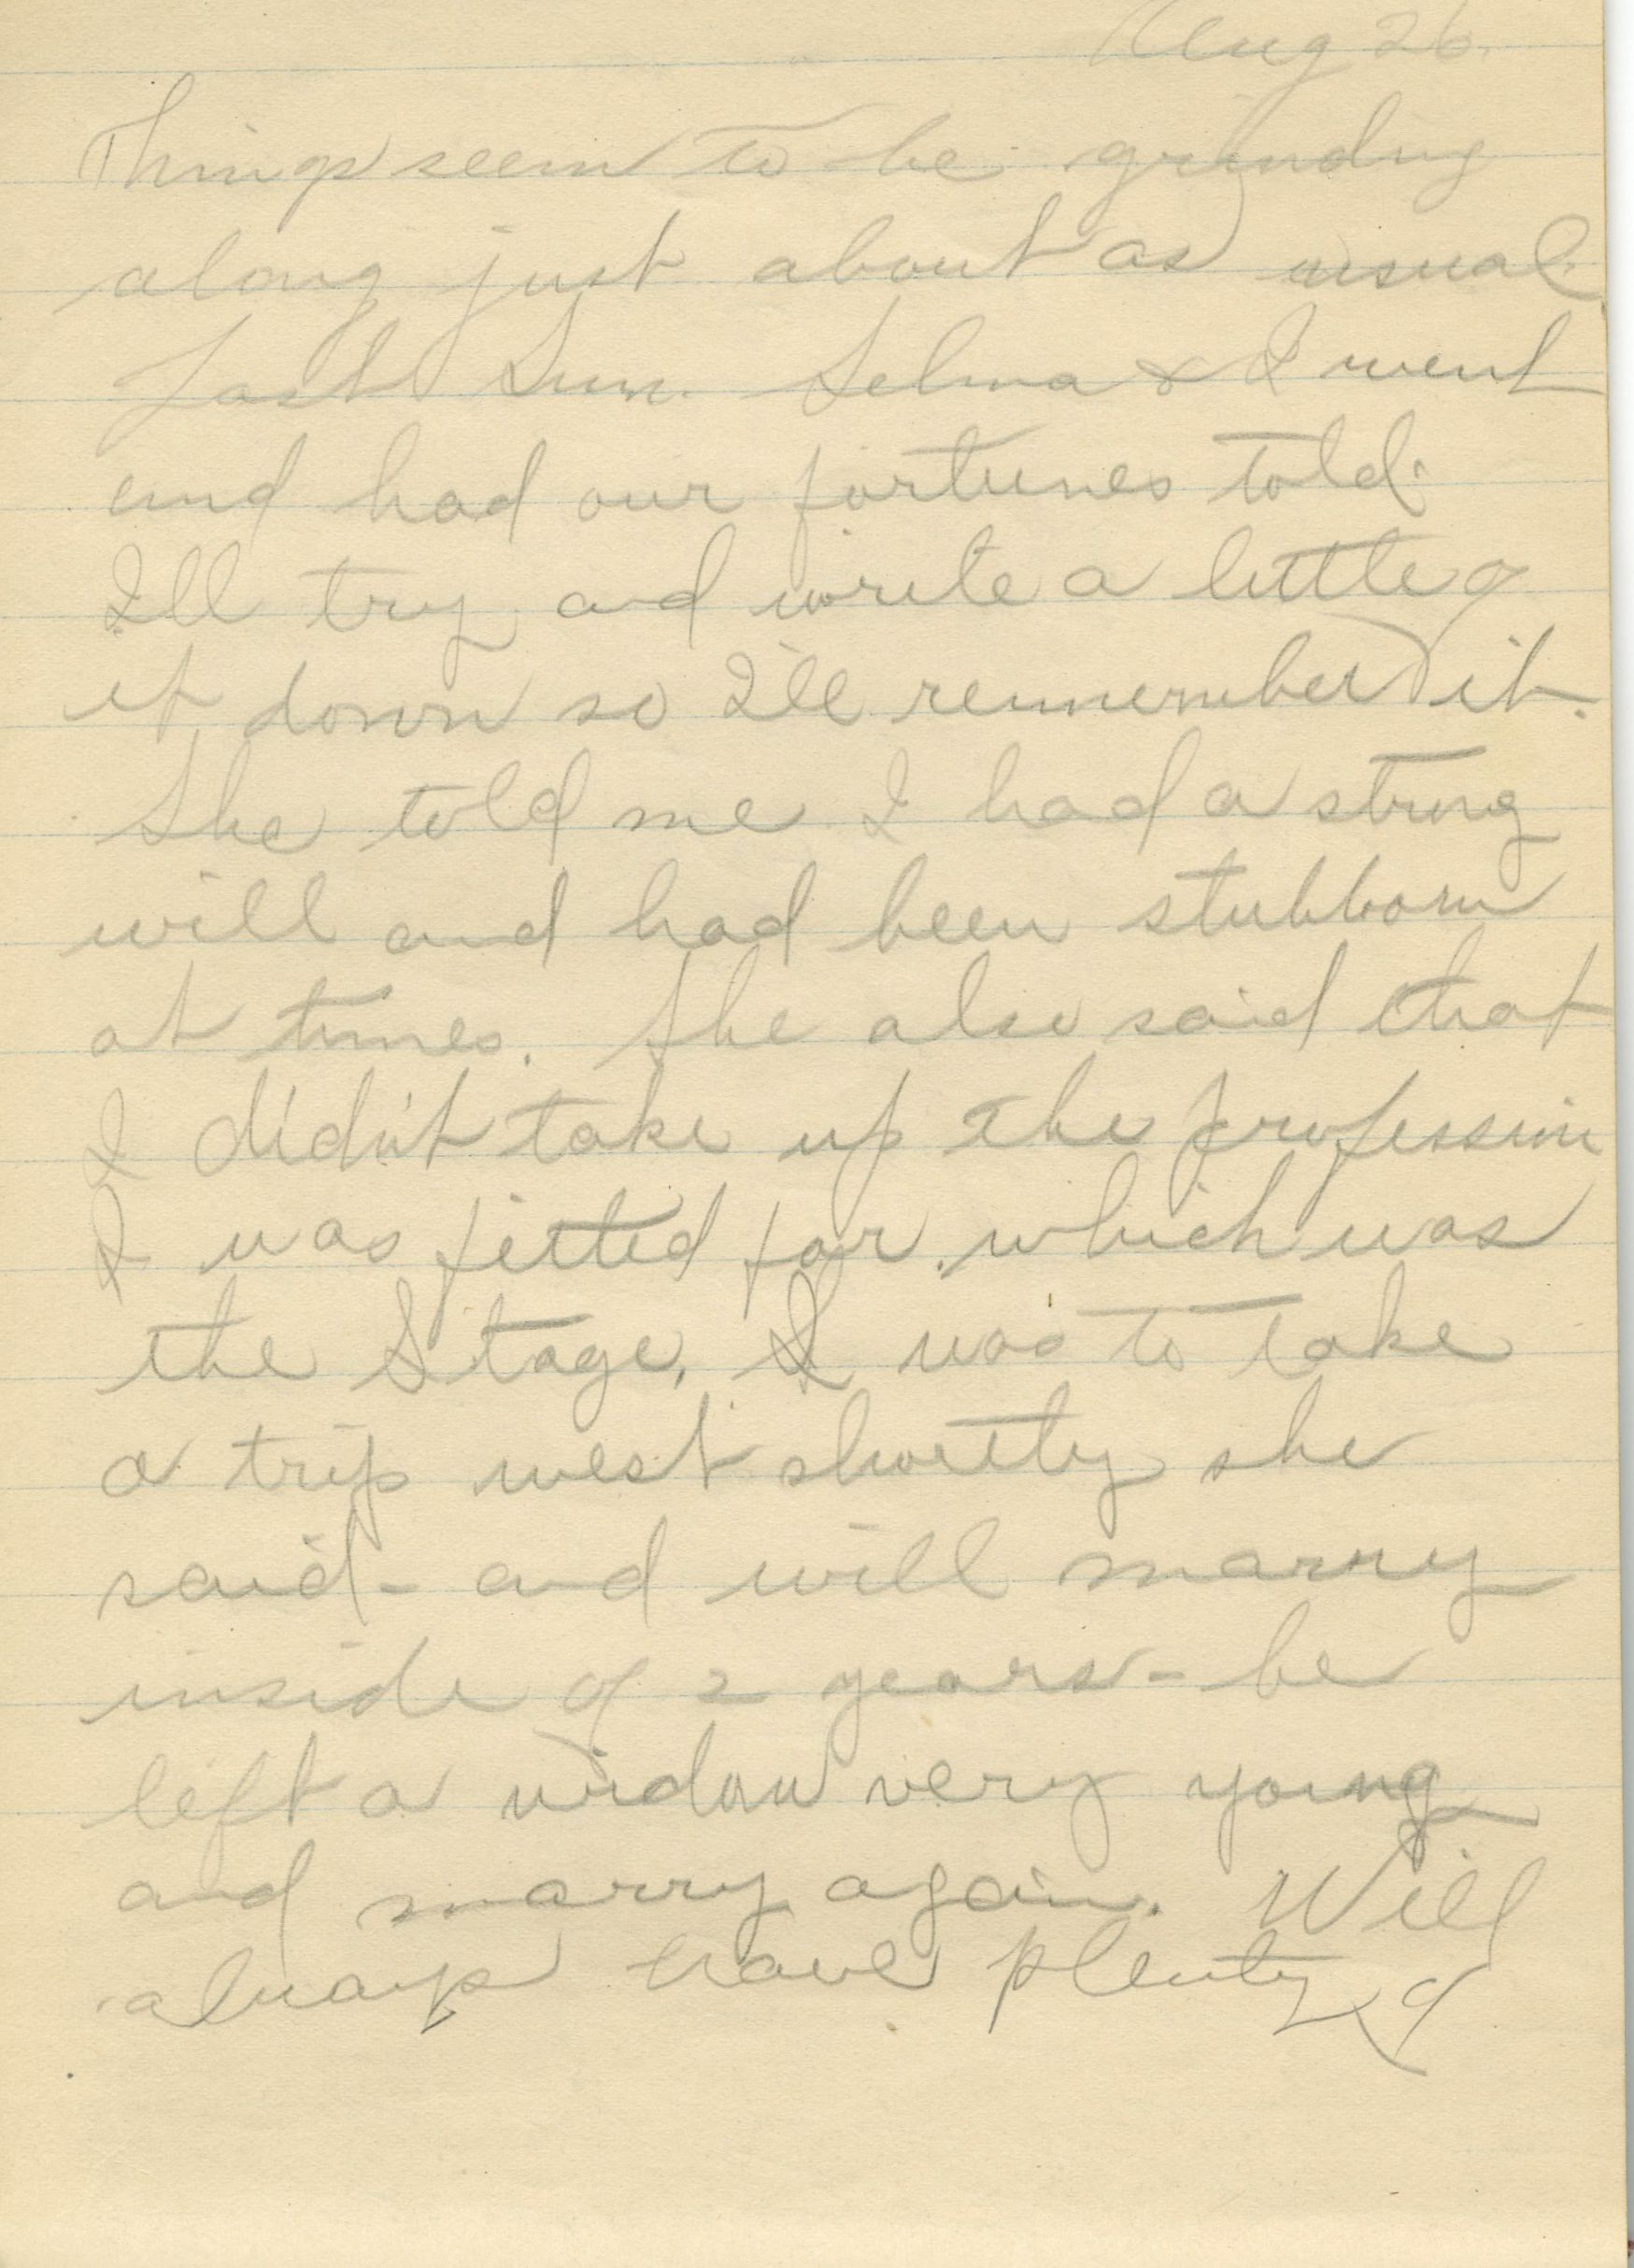 Aug 26.
Things seem to be grinding
along just about as usual.
Last Sun. Selma & I went
and had our fortunes told.
I'll try and write a little of
it down so I'll remember it.
She told me I had a strong
will and had been stubborn
at times. She also said that
I didn't take up the profession
I was fitted for which was
the Stage. I was to take
a trip west shortly she
said - and will marry
inside of 2 years - be
left a widow very young
and marry again. Will
always have plenty of